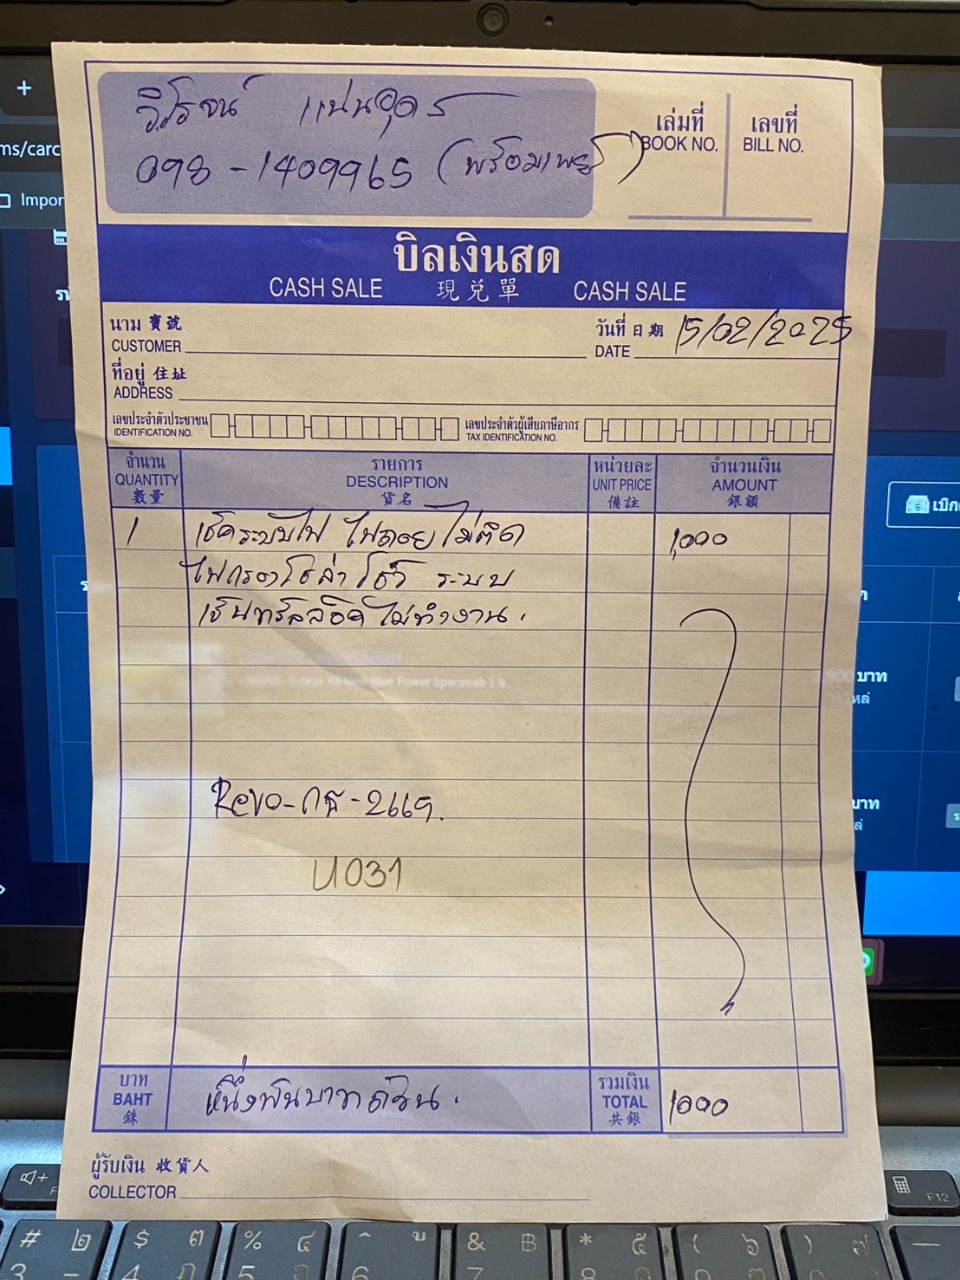 วิโรจน์ แน่นอุดร
098-1409965 (พร้อมเพย์)
เล่มที่
BOOK NO.
เลขที่
BILL NO.
บิลเงินสด
CASH SALE 現兑單 CASH SALE
นาม 寶號
CUSTOMER
วันที่ 日期 15/02/2025
DATE
ที่อยู่ 住址
ADDRESS
เลขประจำตัวประชาชน
IDENTIFICATION NO.
เลขประจำตัวผู้เสียภาษีอากร
TAX IDENTIFICATION NO.
จำนวน รายการ หน่วยละ จำนวนเงิน
QUANTITY DESCRIPTION UNIT PRICE AMOUNT
数量 貨名 備註 銀額
1 เช็คระบบไฟ ไฟถอย ไม่ติด 1,000
ไฟกรอบโซล่าโชว์ ระบบ
เซ็นทรัลล็อคไม่ทำงาน.
Blue Power Spacecab 1.9
Revo-กธ-2669.
U031
บาท
BAHT
銖
หนึ่งพันบาทถ้วน.
รวมเงิน
TOTAL 1000
共銀
ผู้รับเงิน 收貨人
COLLECTOR
+
ms/carc
Impor
เบิก
บาท
บาท
F12
# ๒ $ ๓ % ๔ & ฿ * ๕ ( ๖ ) ๗
3 4 5 6 7 8